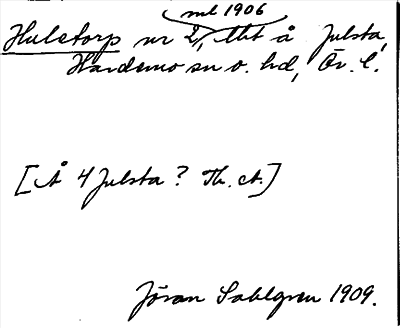 enl 1906
Hulstorp nr 2, tht å Julsta,
Hardemo sn o. hd, Ör. l.
[Å 4 Julsta? Th. A.]
Jöran Sahlgren 1909.